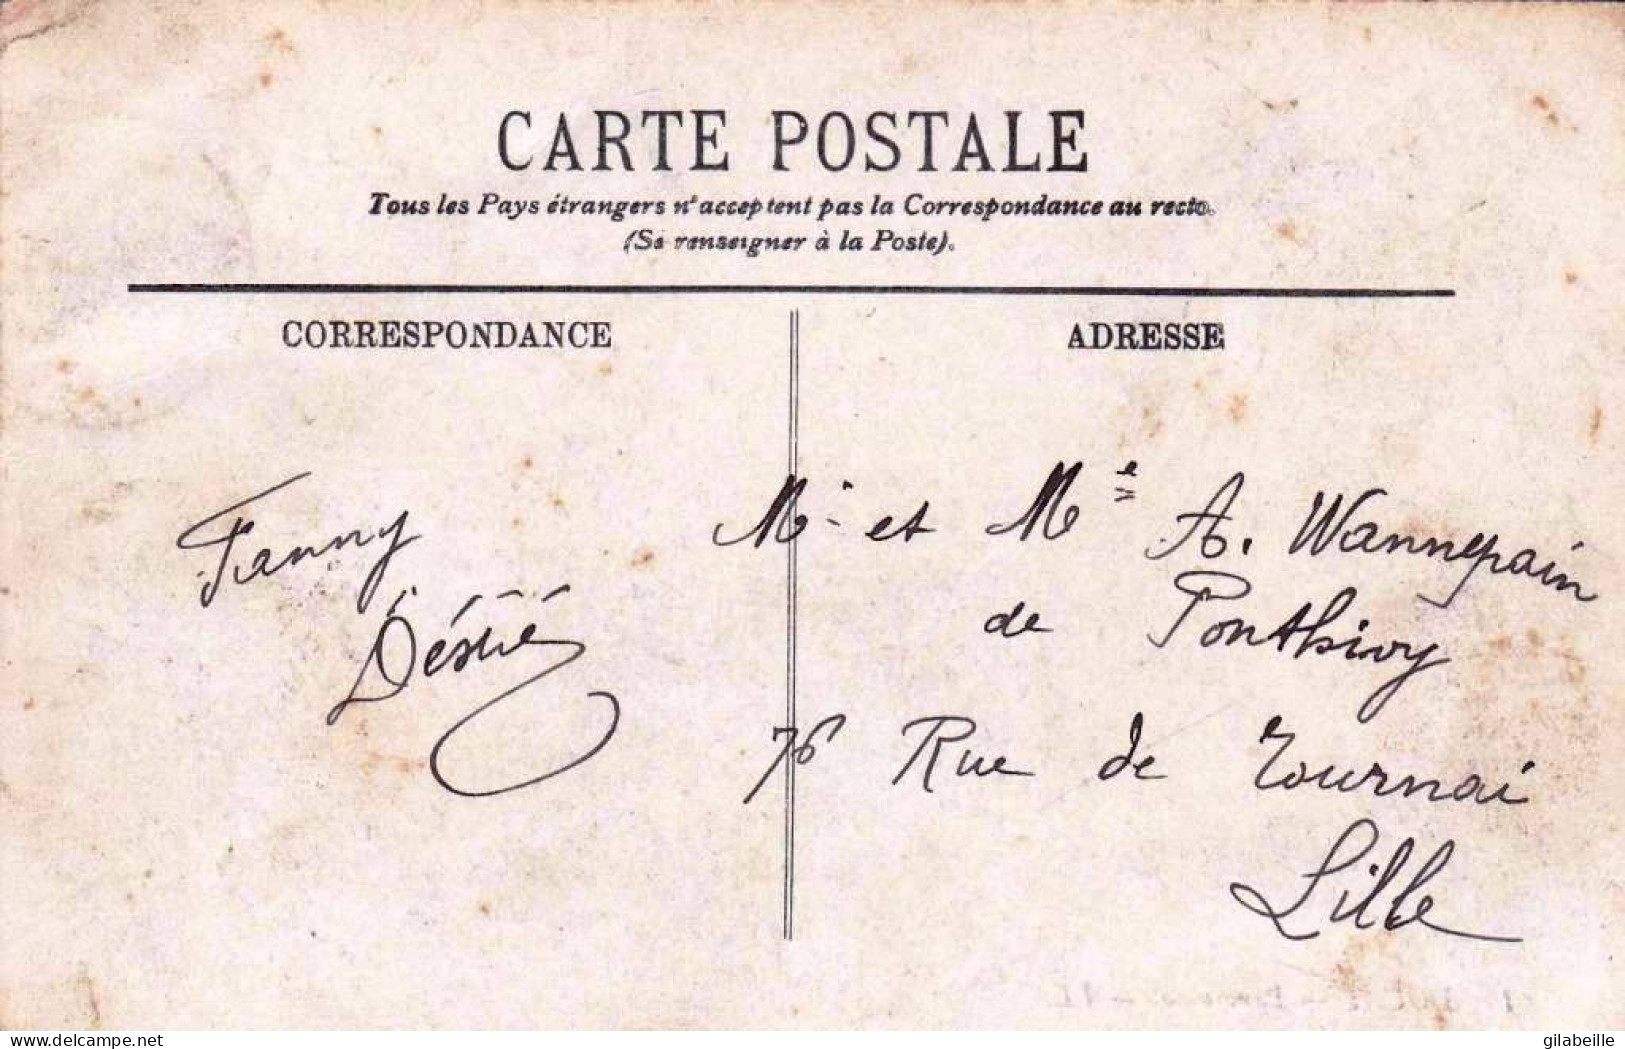 CARTE POSTALE
Tous les Pays étrangers n'acceptent pas la Correspondance au recto.
(Se renseigner à la Poste).
CORRESPONDANCE
ADRESSE
Fanny
Désiré
Mr et Me A. Wannepain
de Ponthivy
76 Rue de Tournai
Lille
delcampe.net
gilabeille